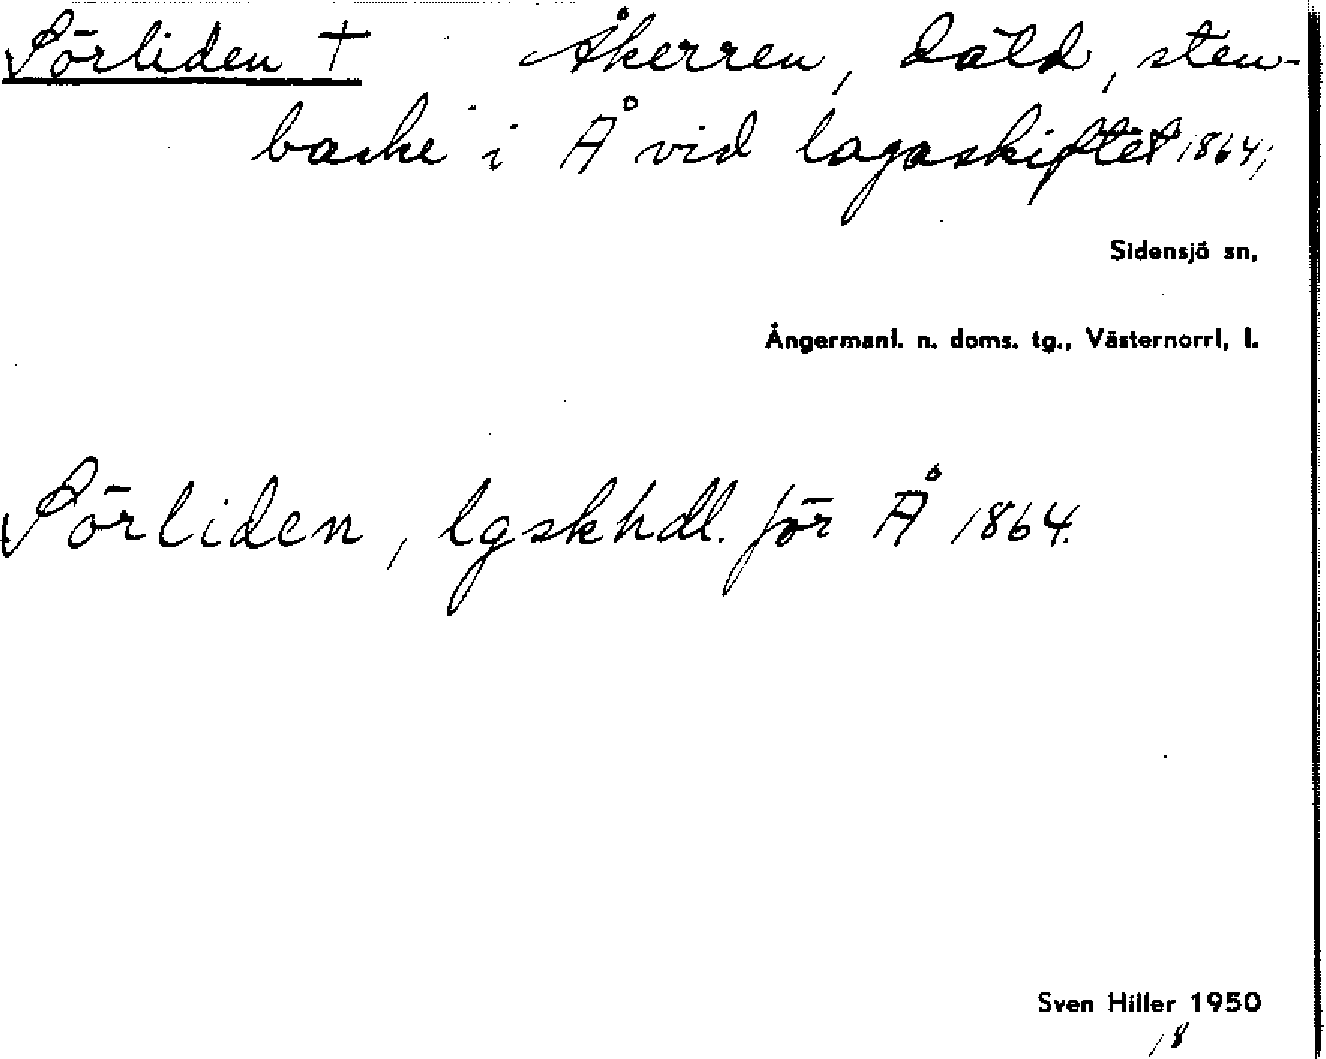 Sörliden † Åkerren, däld, sten-
backe i Å vid lagaskiftet 1864;
Sidensjö sn,
Ångermanl. n. doms. tg., Västernorrl, l.
Sörliden, lgskhdl. för Å 1864.
Sven Hiller 1950
18